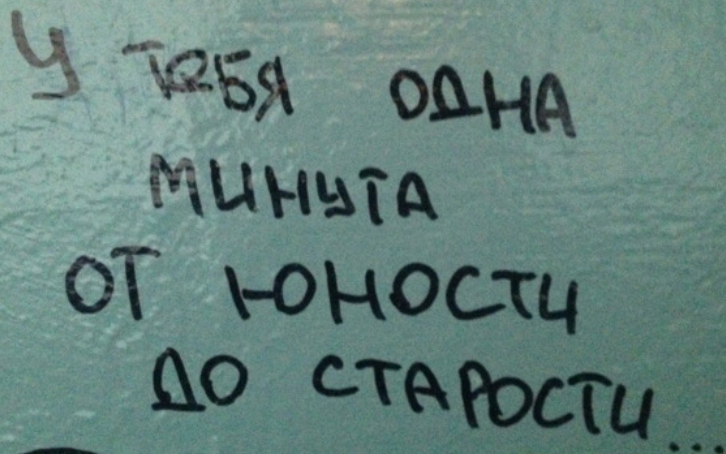 У ТЕБЯ ОДНА
МИНУТА
ОТ ЮНОСТИ
ДО СТАРОСТИ...